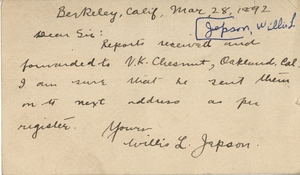 Berkeley, Calif, Mar 28, 1892
Jepson, Willis L
Dear Sir:
Reports received and
forwarded to V.K. Chesnut, Oakland. Cal
I am sure that he sent them
on to next address as per
register.
Yours
Willis L. Jepson.